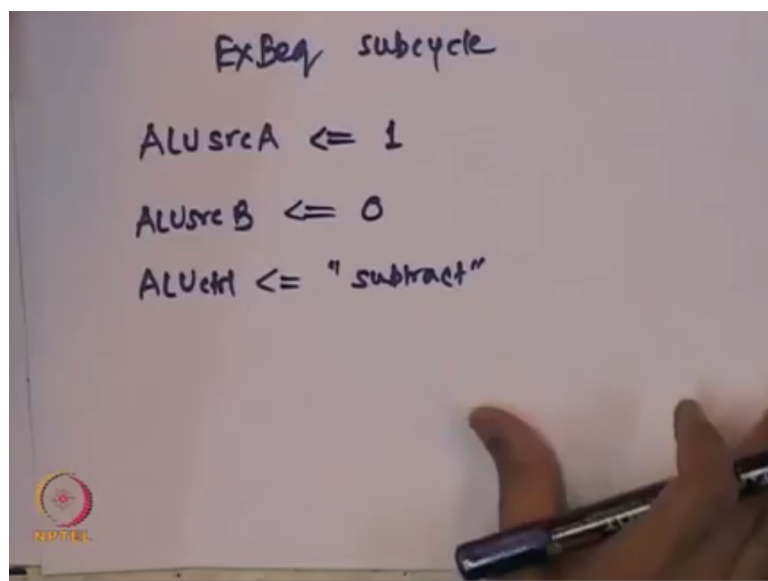 ExBeq subcycle
ALUsrcA <= 1
ALUsrcB <= 0
ALUctrl <= "subtract"
NPTEL